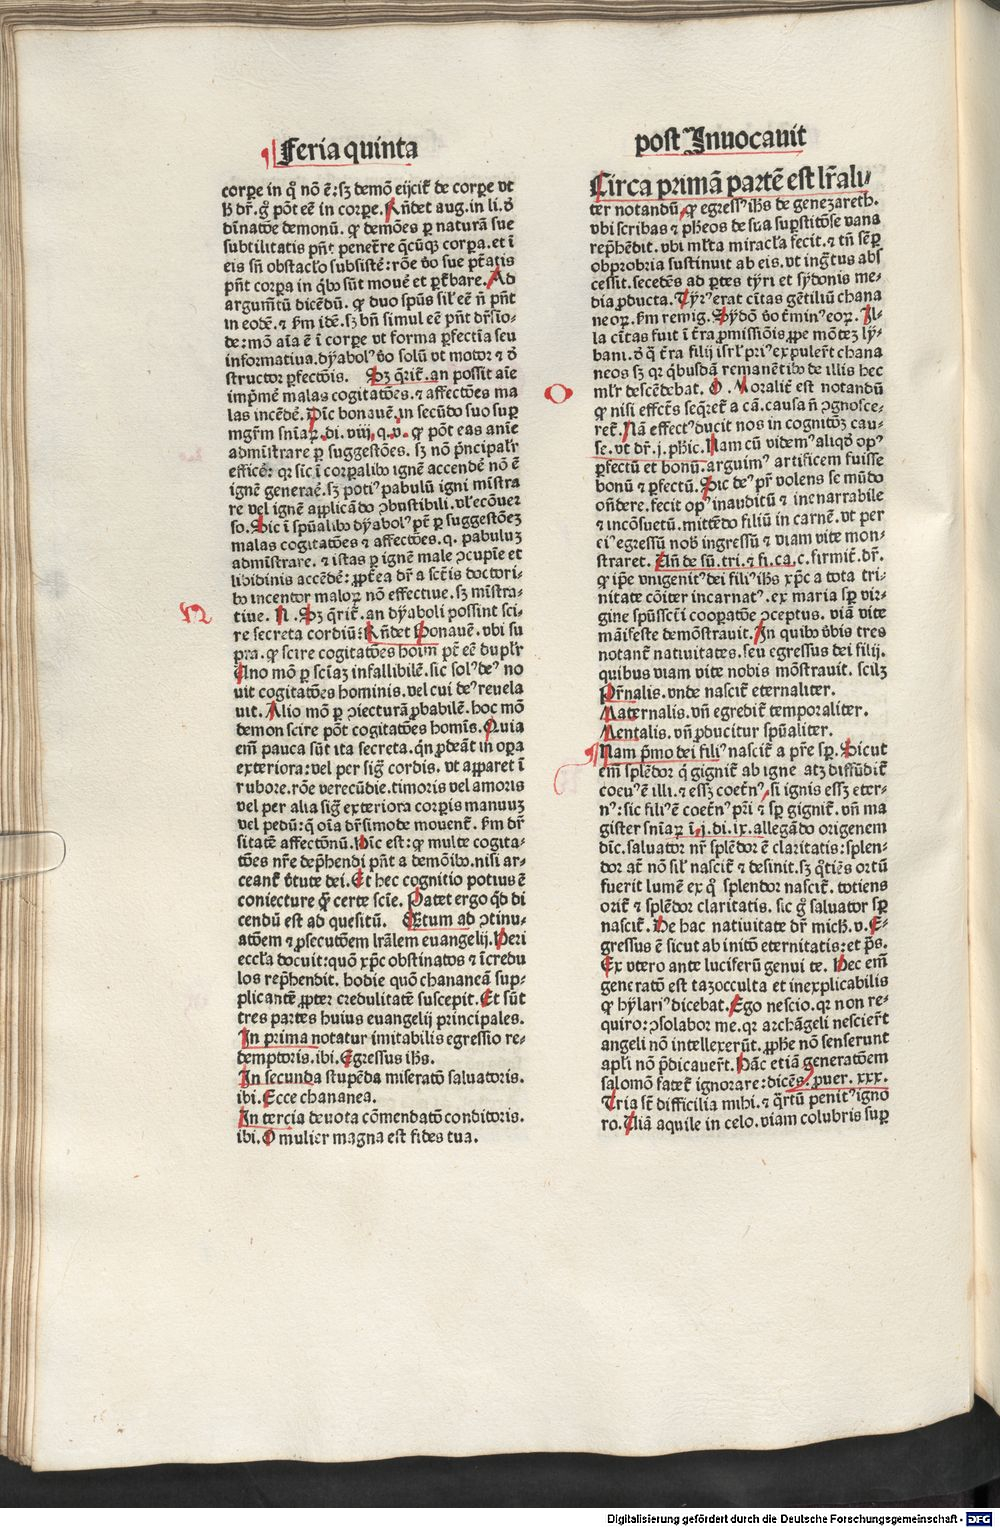 Feria quinta
corpe in q̄ nō ē: sꝫ demō eijcit̄ de corpe vt
h̄ dr̄. gͦ pōt eē in corpe. Rn̄det aug. in li. d̓
dīnatōe demonū. ꝙ demōes ꝑ naturā sue
subtilitatis pn̄t penetr̄re q̄cūqꝫ corpa. et ī
eis sn̄ obstacl̓o subsistē: rōe v̓o sue pt̄atis
pn̄t corpa in qͥbꝰ sūt mouē et ꝑt̄bare. Ad
argumt̄ū dicēdū. ꝙ duo spūs sil̓ eē n̄ pn̄t
in eodē. ⁊ ẜm idē. sꝫ bn̄ simul eē pn̄t dr̄sio-
de: mō aīa ē ī corpe vt forma ꝑfectīa seu
informatiua. dyabolꝰ v̓o solū vt motor ⁊ d̓
structor ꝑfectōis. Sꝫ q̄rit̄. an possit aīe
impͥmē malas cogitatōes. ⁊ affectōes ma
las incēdē. Dīc bonauē. in secūdo suo suꝑ
mgr̄m snīaꝝ. di. viij. q. v. ꝙ pōt eas anīe
admīstrare ꝑ suggestōes. sꝫ nō pͥncipalr̄
efficē: qꝛ sic ī corꝑalibꝰ ignē accendē nō ē
ignē generaē. sꝫ potiꝰ pabulū igni mīstra
re vel ignē applicādo ꝯbustibili. vl̓ ecōuer
so. Sic ī spūalibꝰ dyabolꝰ pōt ꝑ suggestōeꝫ
malas cogitatōes ⁊ affectōes. q. pabuluꝫ
admīstrare. ⁊ istas ꝑ ignē male ꝯcupīe et
libidinis accēdē: ꝓpt̄ea dr̄ a sct̄is doctori-
bꝰ incentor maloꝝ nō effectiue. sꝫ mīstra-
tiue. N. Sꝫ q̄rit̄. an dyaboli possint sci-
re secreta cordiū: Rn̄det Bonauē. vbi su
pra. ꝙ scire cogitatōes hoīm pt̄ eē duplr̄
Uno mō ꝑ scīaꝫ infallibilē. sic solꝰ deꝰ no
uit cogitatōes hominis. vel cui deꝰ reuela
uit. Alio mō ꝑ ꝯiecturā ꝓbabilē. hoc mō
demon scire pōt cogitatōes homīs. Quia
em̄ pauca sūt ita secreta. qn̄ ꝓdeāt in oꝑa
exteriora: vel per sig̓ cordis. vt apparet ī
rubore. rōe verecūdie. timoris vel amoris
vel per alia sig̓ exteriora corꝑis manuuꝫ
vel pedū: q̄ oīa dr̄simode mouent̄. ẜm dr̄
sitatē affectōnū. Hīc est: ꝙ multe cogita-
tōes nr̄e dep̄hendi pn̄t a demōibꝰ. nisi ar-
ceant̄ v̓tute dei. Et hec cognitio potius ē
coniecture qꝫ̄ certe scīe. Patet ergo qd̓ di
cendū est ad quesitū. Etum ad ꝯtinu-
atōem ⁊ ꝓsecutōem lr̄alem euangelij. Heri
eccl̓a docuit: quō xp̄c obstinatos ⁊ īcredu
los rep̄hendit. hodie quō chananeā sup-
plicantē ꝓpter credulitatē suscepit. Et sūt
tres partes huius euangelij principales.
In prima notatur imitabilis egressio re-
demptoris. ibi. Egressus ihs̄.
In secunda stupēda miseratō saluatoris.
ibi. Ecce chananea.
In tercia deuota cōmendatō conditoris.
ibi. O mulier magna est fides tua.
post Inuocauit
Circa primā partē est lr̄ali-
ter notandū, ꝙ egressꝰ ihs̄ de genezareth.
vbi scribas ⁊ ph̓eos de sua suꝑstitōse vana
rep̄hēdit. vbi ml̓ta miracl̓a fecit. ⁊ tn̄ sēꝑ
obprobria sustinuit ab eis. vt ingͣtus abs
cessit. secedēs ad ꝑtes tyri et sydonis me-
dia ꝓducta. Tyrꝰ erat cītas gētiliū chana
neoꝝ. ẜm remig. Sydō v̓o t̄minꝰ eoꝝ. Il-
la cītas fuit ī t̄ra ꝓmissiōis, ꝓpe mōteꝫ ly-
bani. d̓ q̄ t̄ra filij isrl̓ priꝰ expuler̄t chana
neos sꝫ qꝛ qͥbusdā remanētibꝰ de illis hec
ml̓r descēdebat. O. Moralit̄ est notandū
ꝙ nisi effct̄s seq̄ret̄ a cā. causa n̄ ꝯgnosce-
ret̄. Nā effectꝰ ducit nos in cognitōꝫ cau-
se. vt dr̄. j. phic. Nam cū videmꝰ aliqd̓ opꝰ
ꝑfectū et bonū. arguimꝰ artificem fuisse
bonū ⁊ ꝑfectū. Sic deꝰ pr̄ volens se mūdo
on̄dere. fecit opꝰ inauditū ⁊ inenarrabile
⁊ incōsuetū. mittēdo filiū in carnē. vt per
eiꝰ egressū nob̓ ingressū ⁊ viam vite mon-
straret. Un̄ de sū. tri. ⁊ fi. ca. c. firmit̄. dr̄.
ꝙ ip̄e vnigenitꝰ dei filiꝰ ihs̄ xp̄c a tota tri-
nitate cōiter incarnatꝰ. ex maria sꝑ vir-
gine spūssct̄i cooꝑatōe ꝯceptus. viā vite
māifeste demōstrauit. In quibꝰ v̓bis tres
notant̄ natiuitates. seu egressus dei filij.
quibus viam vite nobis mōstrauit. scilꝫ
Pr̄nalis. vnde nascit̄ eternaliter.
Maternalis. vn̄ egredit̄ temporaliter.
Mentalis. vn̄ ꝓducitur spūaliter.
Nam pͥmo dei filiꝰ nascit̄ a pr̄e sꝑ. Sicut
em̄ splēdor qͥ gignit̄ ab igne atꝫ diffūdit̄
coeuꝰ ē illi. ⁊ essꝫ coet̄nꝰ, si ignis essꝫ eter-
nꝰ: sic filiꝰ ē coet̄nꝰ pr̄i ⁊ sꝑ gignit̄. vn̄ ma
gister snīaꝝ ī. j. di. ix. allegādo origenem
dīc. saluator nr̄ splēdor ē claritatis: splen-
dor at̄ nō sil̓ nascit̄ ⁊ desinit. sꝫ qͦtiēs ortū
fuerit lumē ex qͦ splendor nascit̄. totiens
orit̄ ⁊ splēdor claritatis. sic gͦ saluator sꝑ
nascit̄. De hac natiuitate dr̄ mich̓. v. E-
gressus ē sicut ab initō eternitatis: et p̄s.
Ex vtero ante luciferū genui te. Hec em̄
generatō est taꝫ occulta et inexplicabilis
ꝙ hylariꝰ dicebat. Ego nescio. qꝛ non re-
quiro: ꝯsolabor me. qꝛ archāgeli nescier̄t
angeli nō intellexerūt. ꝓphe nō senserunt
apl̓i nō p̄dicauer̄t. Hāc etiā generatōem
salomō fatet̄ ignorare: dicēs. ꝓuer. xxx.
Tria st̄ difficilia mihi. ⁊ qͣrtū penitꝰ igno
ro. Viā aquile in celo. viam colubris suꝑ